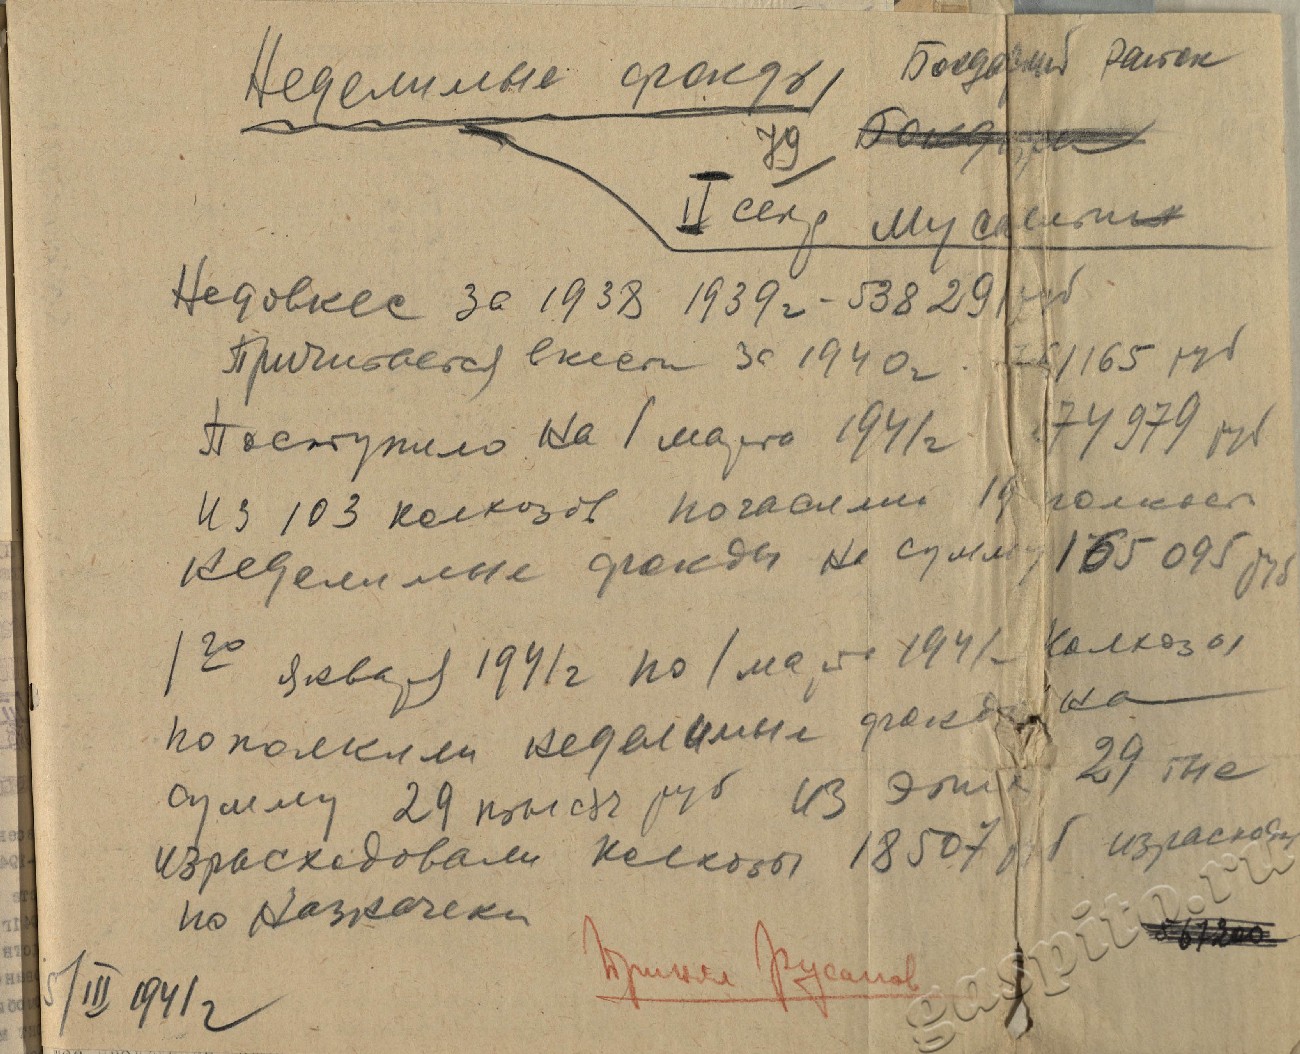 Неделимые фонды
Бондарский район
79
II секр
Недовнес за 1938 1939г - 538 291 руб
Причитается внести за 1940г. 1165 руб
Поступило на 1 марта 1941г 74 979 руб
Из 103 колхозов погасили 19 полност
неделимые фонды на сумму 165 095 руб
1го января 1941г по 1 марта 1941г колхозы
пополнили неделимые фонды на
сумму 29 тысяч руб из этих 29 тыс
израсходовали колхозы 18507 руб израсходов
по назначен
567200
Принял Русанов
5/III 1941г
gaspito.ru